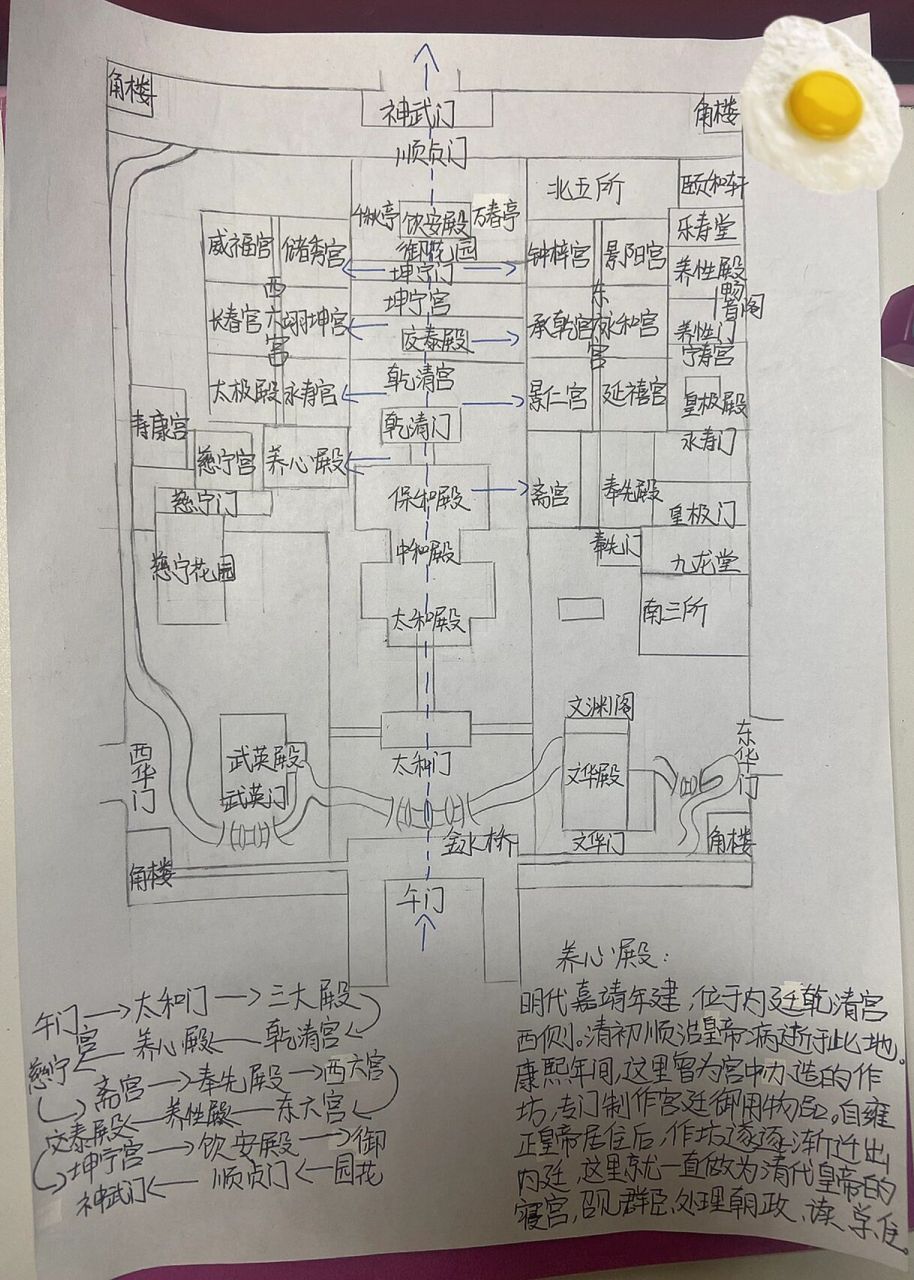 角楼
神武门
角楼
顺贞门
北五所
颐和轩
千秋亭
饮安殿
万春亭
御花园
威福宫
储秀宫
坤宁门
钟梓宫
景阳宫
乐寿堂
养性殿
畅音阁
西六宫
东六宫
长春宫
翊坤宫
坤宁宫
承乾宫
永和宫
养性门
宁寿宫
交泰殿
太极殿
永寿宫
乾清宫
景仁宫
延禧宫
皇极殿
寿康宫
慈宁宫
养心殿
乾清门
永寿门
慈宁门
保和殿
斋宫
奉先殿
皇极门
慈宁花园
中和殿
奉先门
九龙堂
太和殿
南三所
文渊阁
西华门
武英殿
武英门
太和门
文华殿
东华门
金水桥
文华门
角楼
角楼
午门
午门→太和门→三大殿
慈宁宫←养心殿←乾清宫
斋宫→奉先殿→西六宫
交泰殿←养性殿←东六宫
坤宁宫→饮安殿→御
神武门←顺贞门←园花
养心殿:
明代嘉靖年建,位于内廷乾清宫
西侧。清初顺治皇帝病逝于此地。
康熙年间,这里曾为宫中办造的作
坊,专门制作宫廷御用物品。自雍
正皇帝居住后,作坊逐逐渐迁出
内廷,这里就一直做为清代皇帝的
寝宫,召见群臣、处理朝政、读、学、住。